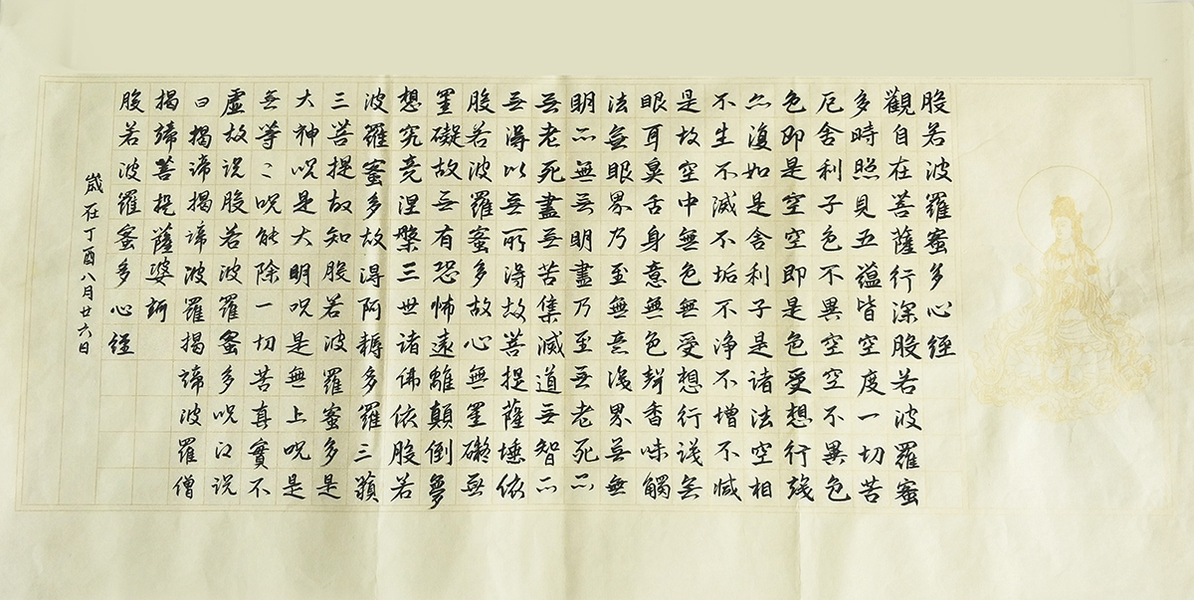 般若波羅蜜多心經
觀自在菩薩行深般若波羅蜜
多時照見五蘊皆空度一切苦
厄舍利子色不異空空不異色
色即是空空即是色受想行識
亦復如是舍利子是諸法空相
不生不滅不垢不淨不增不減
是故空中無色無受想行識無
眼耳鼻舌身意無色聲香味觸
法無眼界乃至無意識界無無
明亦無無明盡乃至無老死亦
無老死盡無苦集滅道無智亦
無得以無所得故菩提薩埵依
般若波羅蜜多故心無罣礙無
罣礙故無有恐怖遠離顛倒夢
想究竟涅槃三世諸佛依般若
波羅蜜多故得阿耨多羅三藐
三菩提故知般若波羅蜜多是
大神呪是大明呪是無上呪是
無等々呪能除一切苦真實不
虛故說般若波羅蜜多呪即說
曰揭諦揭諦波羅揭諦波羅僧
揭諦菩提薩婆訶
般若波羅蜜多心經
歲在丁酉八月廿六日